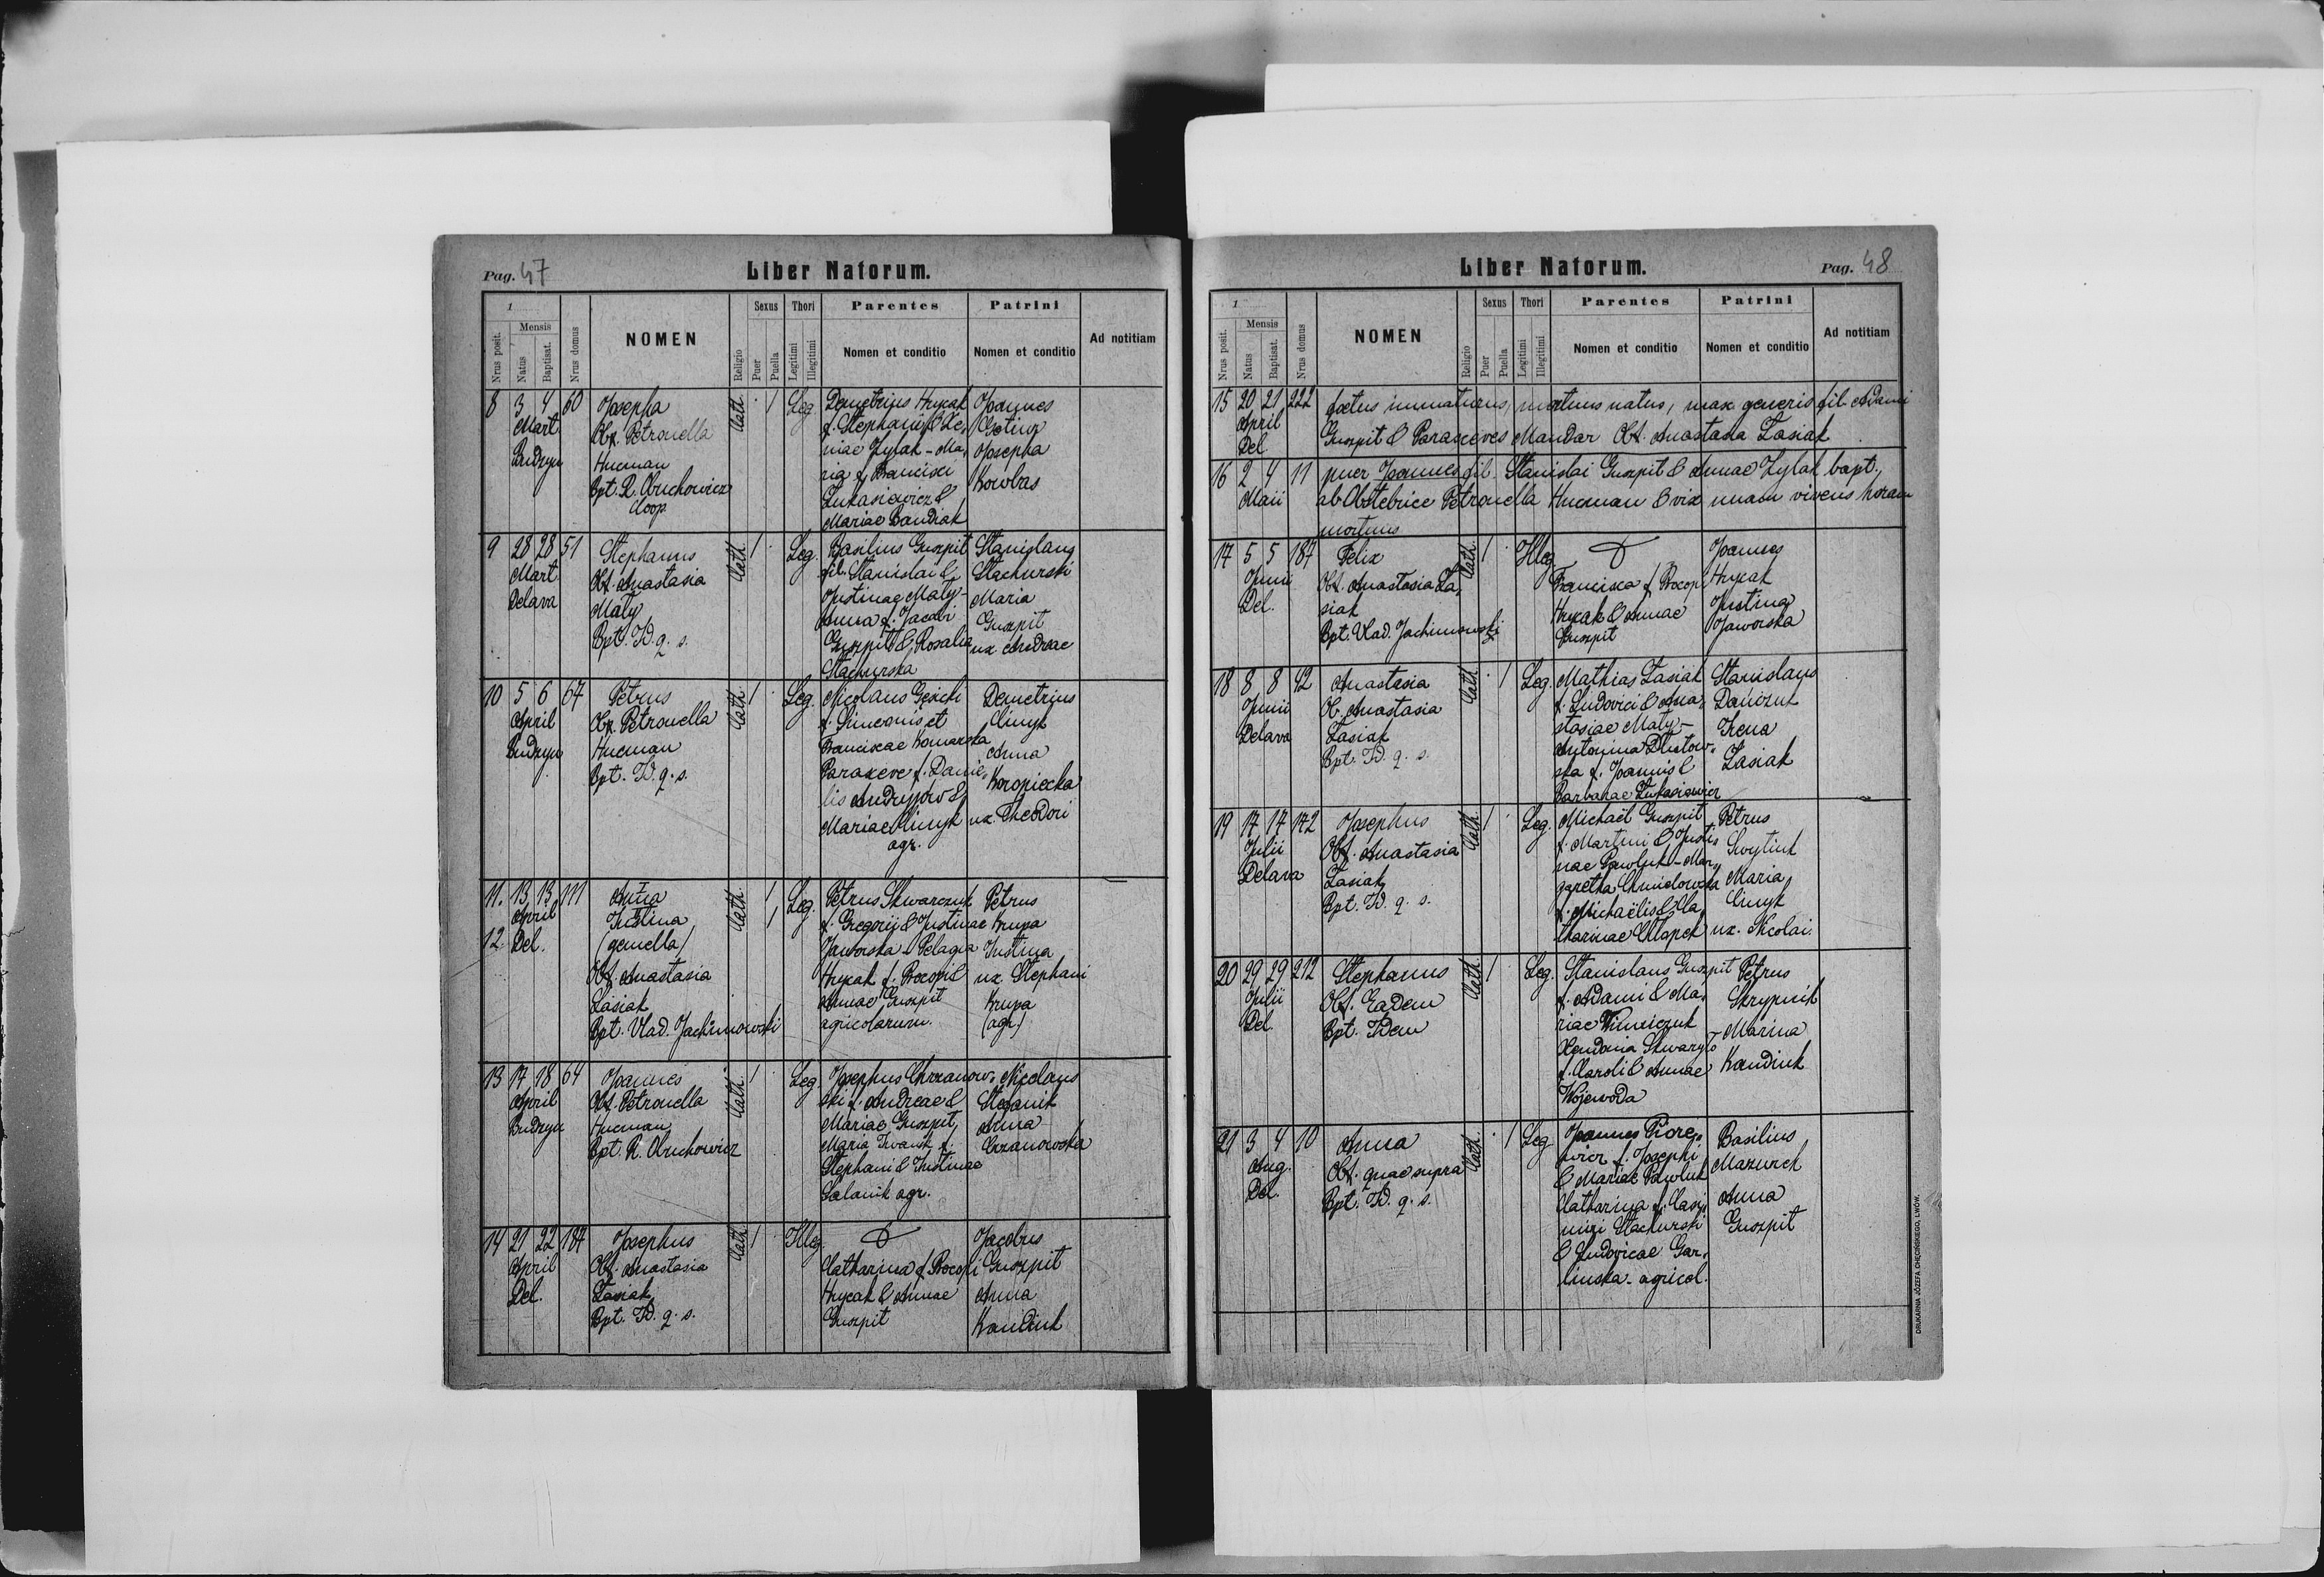 Pag. 47
Liber Natorum.
1
Nrus posit.
Mensis
Natus
Baptisat.
Nrus domus
NOMEN
Religio
Sexus
Puer
Puella
Thori
Legitimi
Illegitimi
Parentes
Nomen et conditio
Patrini
Nomen et conditio
Ad notitiam
8 3 4 60
Mart
Josepha
Obst. Petronella
Hucman
Bpt. R. Obuchowicz
Coop.
Cath.
1
Leg.
Demetrius Hrycak
f. Stephani &
niae Zylak - Ma,
ria f. Francisci
Lukasiewicz &
Mariae Bandiak
Joannes
Josepha
Kowbas
9 28 28 51
Mart
Delava
Stephanus
Obt. Anastasia
Maty
Bpt. Id. q. s.
Cath.
1
Leg.
Basilius Guszpit
fil. Stanislai &
Justinae Maty -
Anna f. Jacobi
Guszpit & Rosalia
Stachurska
Stanislaus
Stachurski
Maria
Guszpit
ux Andreae
10 5 6 67
April
Petrus
Obt. Petronella
Hucman
Bpt. Id. q. s.
Cath.
1
Leg.
Nicolaus
f. Simeonis et
Franciscae Komarska
Paraxeve f. Danie,
lis &
Mariae Clinyk
agr.
Demetrius
Clinyk
Anna
Koropiecka
ux. Theodori
11. 13 13 111
April
12. Del.
Anna
Justina
(gemella)
Obt. Anastasia
Lasiak
Bpt. Vlad. Jachimowski
Cath.
1
1
Leg.
Petrus Skwarczuk
f. Gregorii & Justinae
Jaworska & Pelagia
Hrycak f. Procopii &
Annae Guszpit
agricolarum.
Petrus
Krupa
Justina
ux. Stephani
Krupa
(agr.)
13 17 18 64
April
Joannes
Obt. Petronella
Hucman
Bpt. R. Obuchowicz
Cath.
1
Leg.
Josephus Chrzanow,
ski f. Andreae &
Mariae Guszpit,
Maria f.
Stephani & Justinae
agr.
Nicolaus
Anna
Chrzanowska
14 21 22 187
April
Del.
Josephus
Obt. Anastasia
Lasiak
Bpt. Id. q. s.
Cath.
1
Illeg.
Catharina f. Procopi
Hrycak & Annae
Guszpit
Jacobus
Guszpit
Anna
Kandiuk
Liber Natorum.
Pag. 48
1
Nrus posit.
Mensis
Natus
Baptisat.
Nrus domus
NOMEN
Religio
Sexus
Puer
Puella
Thori
Legitimi
Illegitimi
Parentes
Nomen et conditio
Patrini
Nomen et conditio
Ad notitiam
15 20 21 222
April
Del
foetus immaturus, mortuus natus, masc generis fil. Adami
Guszpit & Parasceves Mandar Obt. Anastasia Lasiak
16 2 4 11
Maii
puer Joannes fil. Stanislai Guszpit & Annae Zylak bapt.,
ab Obstetrice Petronella Hucman & vix unam vivens horam
mortuus
17 5 5 187
Junii
Del.
Felix
Obt. Anastasia La,
siak
Bpt. Vlad. Jachimowski
Cath.
1
Illeg
Francisca f. Procopi
Hrycak & Annae
Guszpit
Joannes
Hrycak
Justina
Jaworska
18 8 8 42
Junii
Delava
Anastasia
Ob. Anastasia
Lasiak
Bpt. Id. q. s.
Cath.
1
Leg.
Mathias Lasiak
f. Ludovici & Ana,
stasiae Maty -
Antonina
ska f. Joannis &
Barbarae Lukasiewicz
Stanislaus
Daniczuk
Irena
Lasiak
19 17 17 172
Julii
Delava
Josephus
Obt. Anastasia
Lasiak
Bpt. Id. q. s.
Cath.
1
Leg.
Michaël Guszpit
f. Martini & Justi,
nae Pawluk - Mar,
garetha Chmielowska
f. Michaëlis & Ca,
tharinae Chlapek
Petrus
Maria
Clinyk
ux. Nicolai.
20 29 29 212
Julii
Del.
Stephanus
Obt. Eadem
Bpt. Idem
Cath.
1
Leg.
Stanislaus Guszpit
f. Adami & Ma,
riae
Xendonia
f. Caroli & Annae
Wojewoda
Petrus
Skrypnik
Marina
Kandiuk
21 3 4 10
Aug.
Del.
Anna
Obt. quae supra
Bpt. Id. q. s.
Cath.
1
Leg
Joannes
f. Josephi
& Mariae Pawluk
Catharina f. Casi,
miri Stachurski
& Ludovicae Gar,
linska - agricol.
Basilius
Mazurek
Anna
Guszpit
DRUKARNIA JÓZEFA CHĘCIŃSKIEGO, LWÓW.